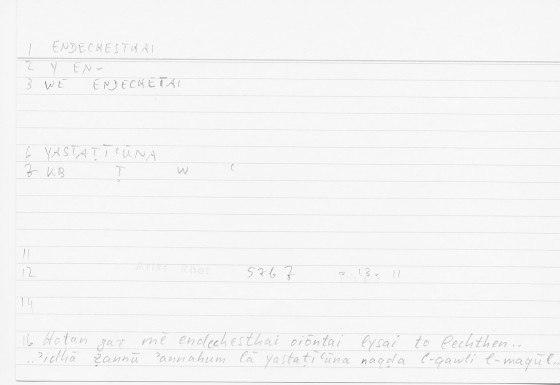 1 ENDECHESTHAI
2 Y EN-
3 WE ENDECHETAI
6 YASTAṬĪʿŪNA
7 KB Ṭ W ʿ
11
12 5767 = 13. 11
14
16 Hotan gar mē endechesthai oiōntai lysai to lechthen..
..ʾidhā ẓannū ʾannahum lā yastaṭīʿūna naqḍa l-qawli l-maqūl..